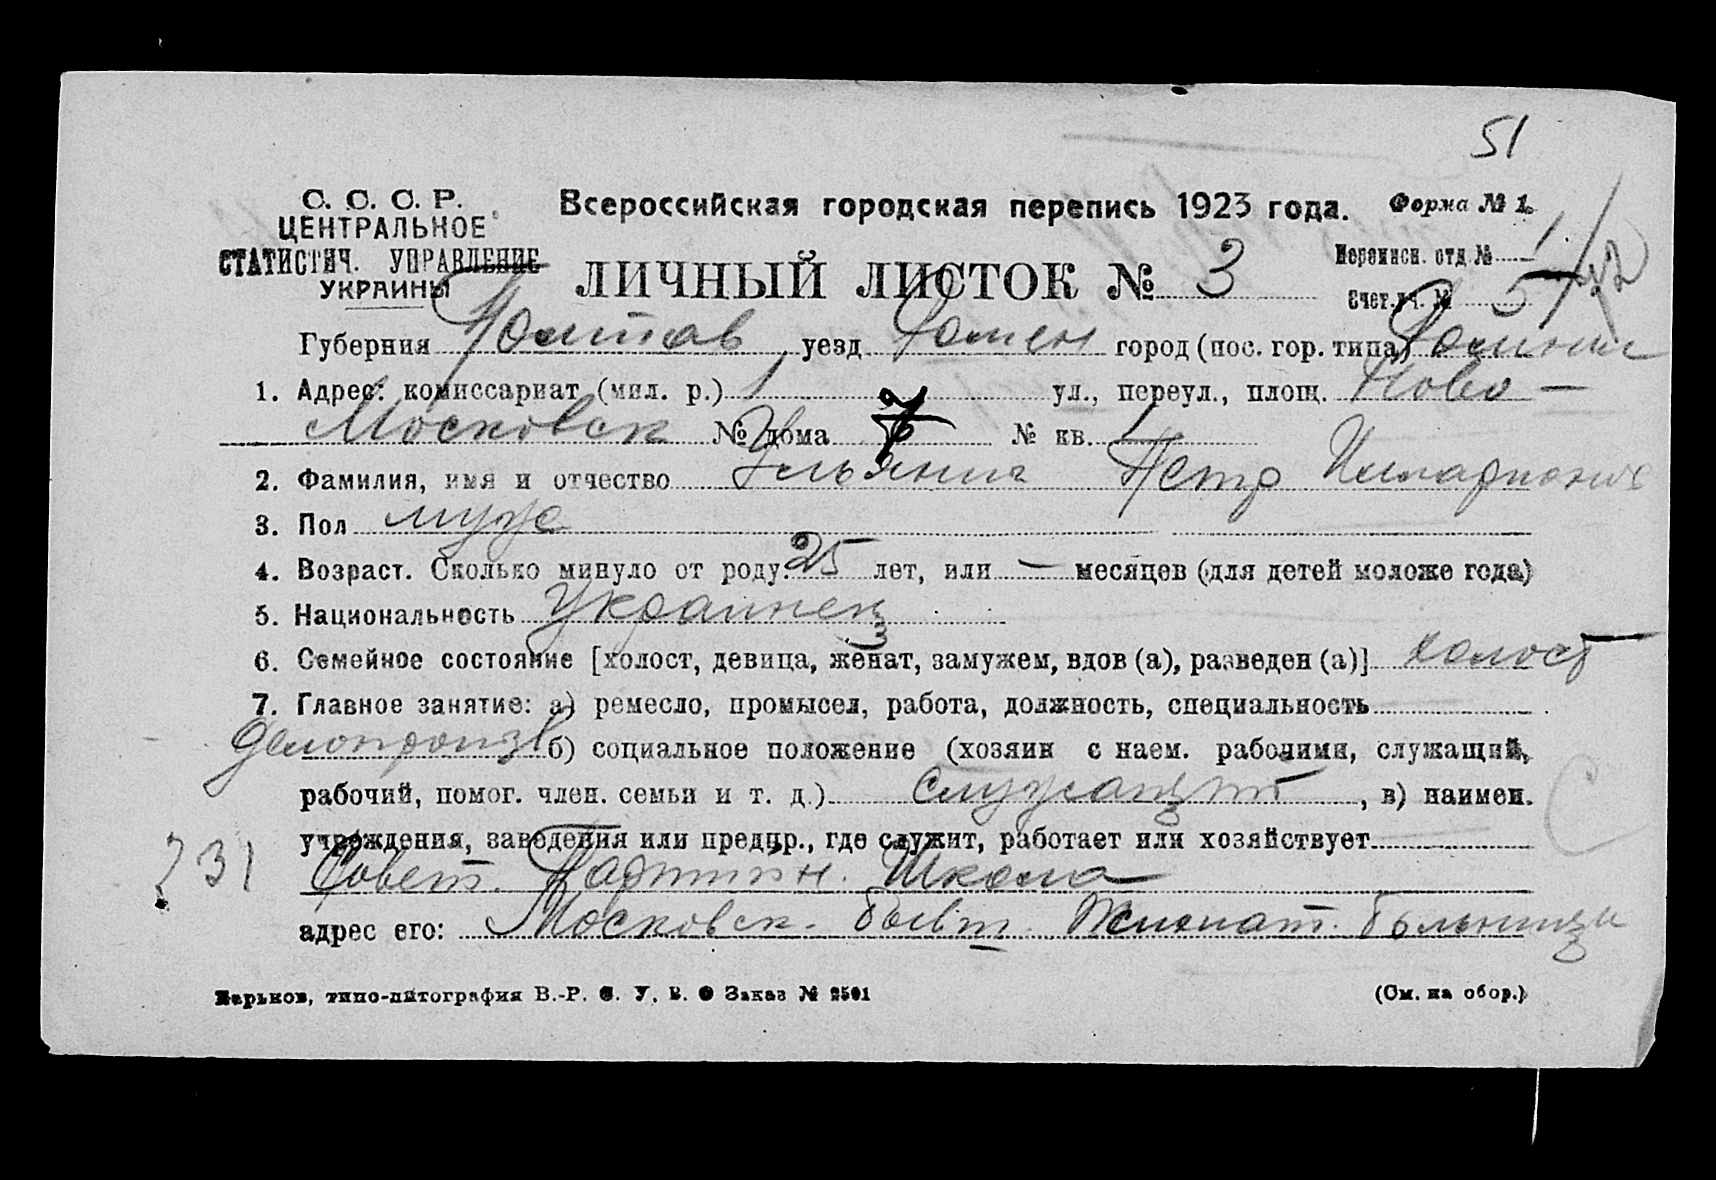 51
С. С. С. Р.
ЦЕНТРАЛЬНОЕ
СТАТИСТИЧ. УПРАВЛЕНИЕ
УКРАИНЫ
Всероссийская городская перепись 1923 года. Форма № 1.
ЛИЧНЫЙ ЛИСТОК № 3
Переписн. отд. № 1
Счетч. № 5
Губерния Полтав уезд Ромен город (пос. гор. типа) Ромны
1. Адрес: комиссариат (мил. р.) 1 ул., переул., площ. Ново-
Московск № дома 7 № кв. 1
2. Фамилия, имя и отчество Петр Илларионов
3. Пол муж
4. Возраст. Сколько минуло от роду: 25 лет, или — месяцев (для детей моложе года)
5. Национальность Украинец
6. Семейное состояние [холост, девица, женат, замужем, вдов (а), разведен (а)] холост
7. Главное занятие: а) ремесло, промысел, работа, должность, специальность
делопроизв б) социальное положение (хозяин с наем. рабочими, служащий,
рабочий, помог. член. семьи и т. д.) служащий, в) наимен.
учреждения, заведения или предпр., где служит, работает или хозяйствует
231 Совет. Партийн. Школа
адрес его: Московск. бывш. Больницы
Харьков, типо-литография В.-Р. С. У. В. О Заказ № 2501 (См. на обор.)